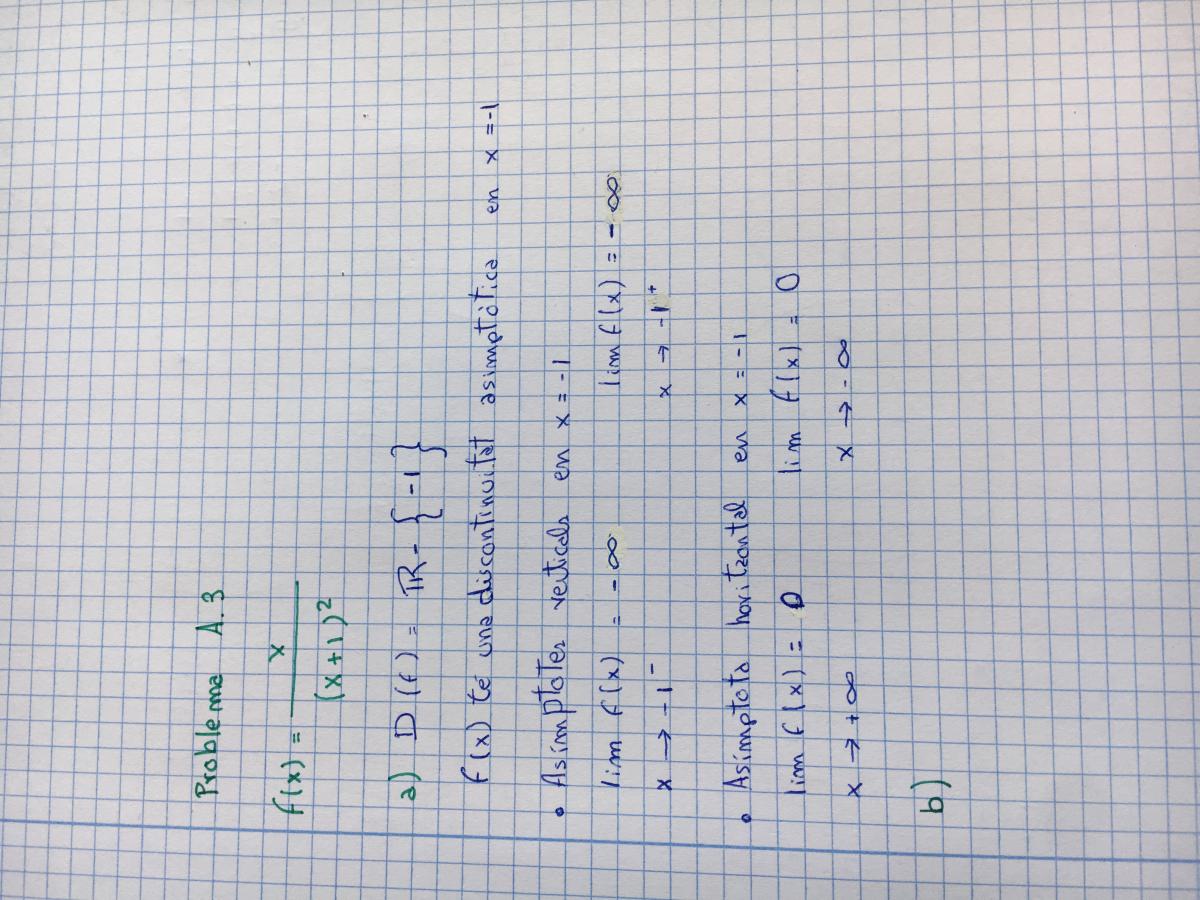 Problema A.3
f(x) = x / (x+1)²
a) D(f) = ℝ - {-1}
f(x) te una discontinuitat asimptòtica en x = -1
• Asímptotes verticals en x = -1
lim f(x) = -∞ lim f(x) = -∞
x → -1⁻ x → -1⁺
• Asímptota horitzontal en x = -1
lim f(x) = 0 lim f(x) = 0
x → +∞ x → -∞
b)